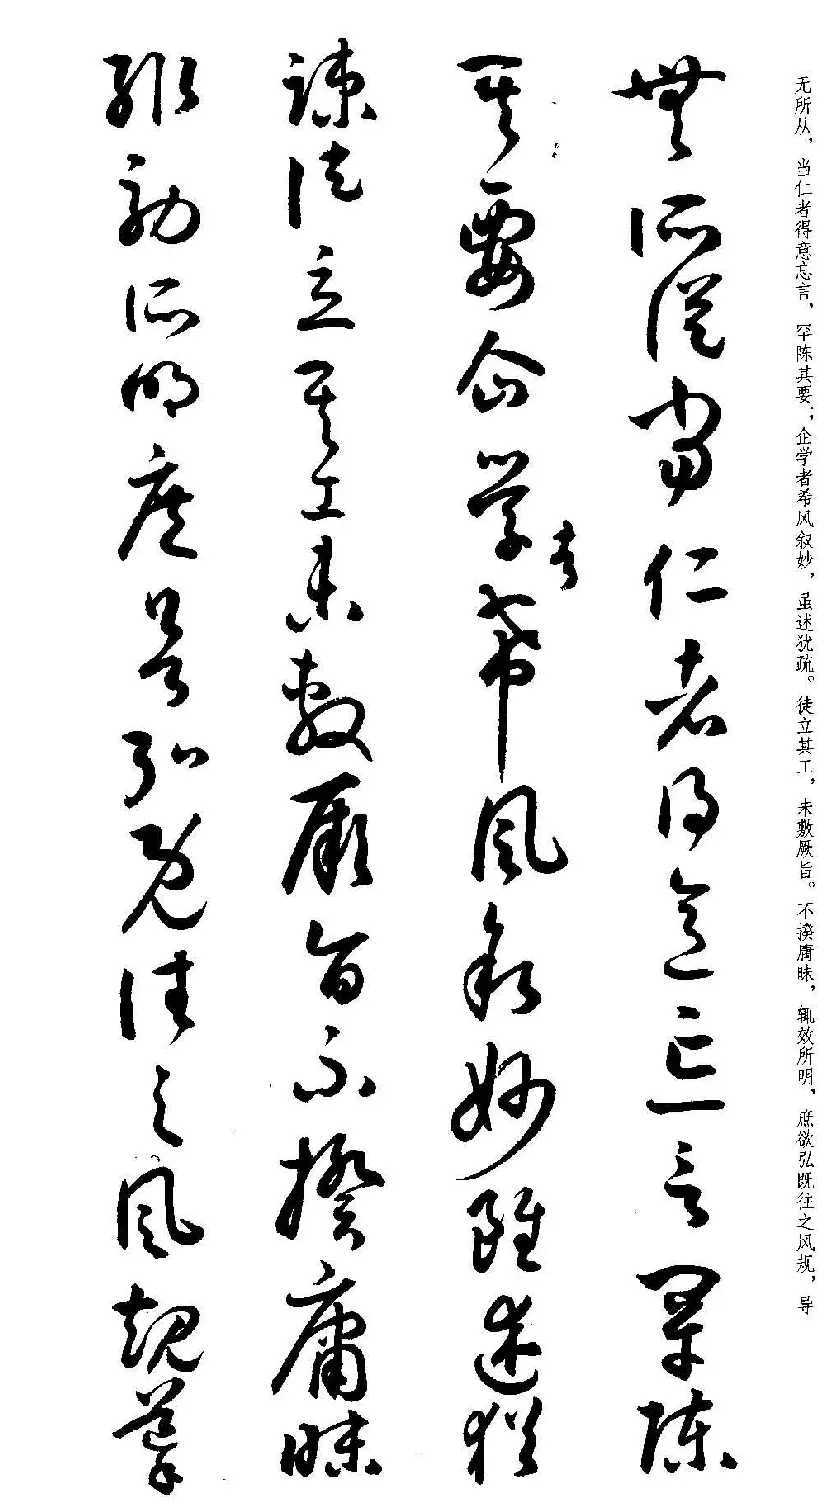 無所從當仁者得意忘言罕陳
其要企學者希風敘妙雖述猶
疎徒立其工未敷厥旨不揆庸昧
輒効所明庶欲弘既往之風規導
无所从，当仁者得意忘言，罕陈其要；企学者希风叙妙，虽述犹疏。徒立其工，未敷厥旨。不揆庸昧，辄效所明，庶欲弘既往之风规，导